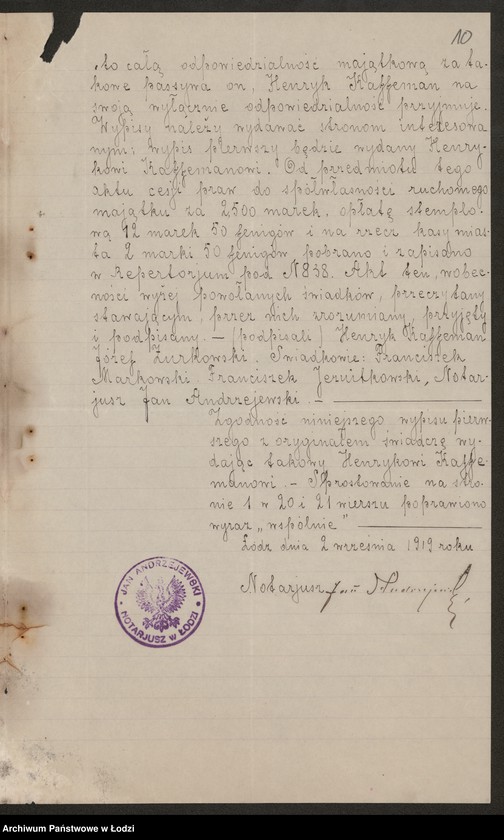 10
to całą odpowiedzialność majątkową za ta-
kowe passywa on, Henryk Kaffeman na
swoją wyłącznie odpowiedzialność przyjmuje.
Wypisy należy wydawać stronom interesowa
nym: wypis pierwszy będzie wydany Henry-
kowi Kaffemanowi. Od przedmiotu tego
aktu cesji praw do spółwłasności ruchomego
majątku za 2500 marek, opłatę stemplo-
wą 12 marek 50 fenigów i na rzecz kasy mias-
ta 2 marki 50 fenigów pobrano i zapisano
w Repertorjum pod N 838. Akt ten, wobec-
ności wyżej powołanych świadków, przeczytany
stawającym, przez nich zrozumiany, przyjęty
i podpisany. – (podpisali) Henryk Kaffeman
Józef Żurkowski. Świadkowie: Franciszek
Markowski. Franciszek Jezuitkowski, Notar-
jusz Jan Andrzejewski. –
Zgodność niniejszego wypisu pierw-
szego z oryginałem świadczę wy-
dając takowy Henrykowi Kaffe-
manowi. – Sprostowanie na stro-
nie 1 w 20 i 21 wierszu poprawiono
wyraz „wspólnie"
Łódz dnia 2 września 1919 roku
Notarjusz Jan Andrzejewski
JAN ANDRZEJEWSKI
NOTARJUSZ w ŁODZI
Archiwum Państwowe w Łodzi